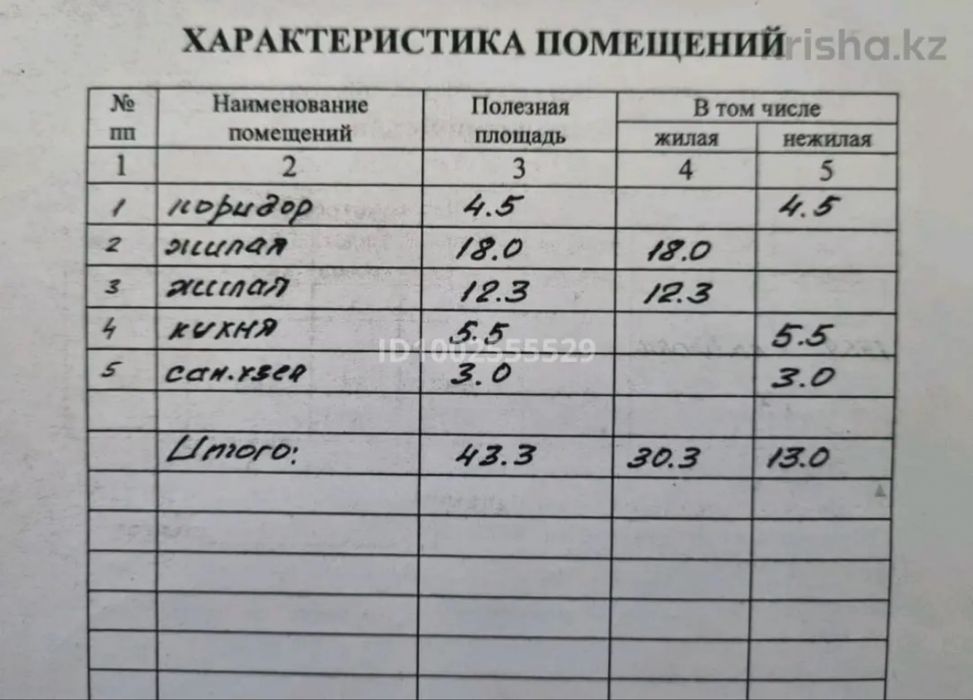 ХАРАКТЕРИСТИКА ПОМЕЩЕНИЙ
krisha.kz
№ пп Наименование помещений Полезная площадь В том числе
жилая нежилая
1 2 3 4 5
1 коридор 4.5 4.5
2 жилая 18.0 18.0
3 жилая 12.3 12.3
4 кухня 5.5 5.5
ID1002555529
5 сан.узел 3.0 3.0
Итого: 43.3 30.3 13.0